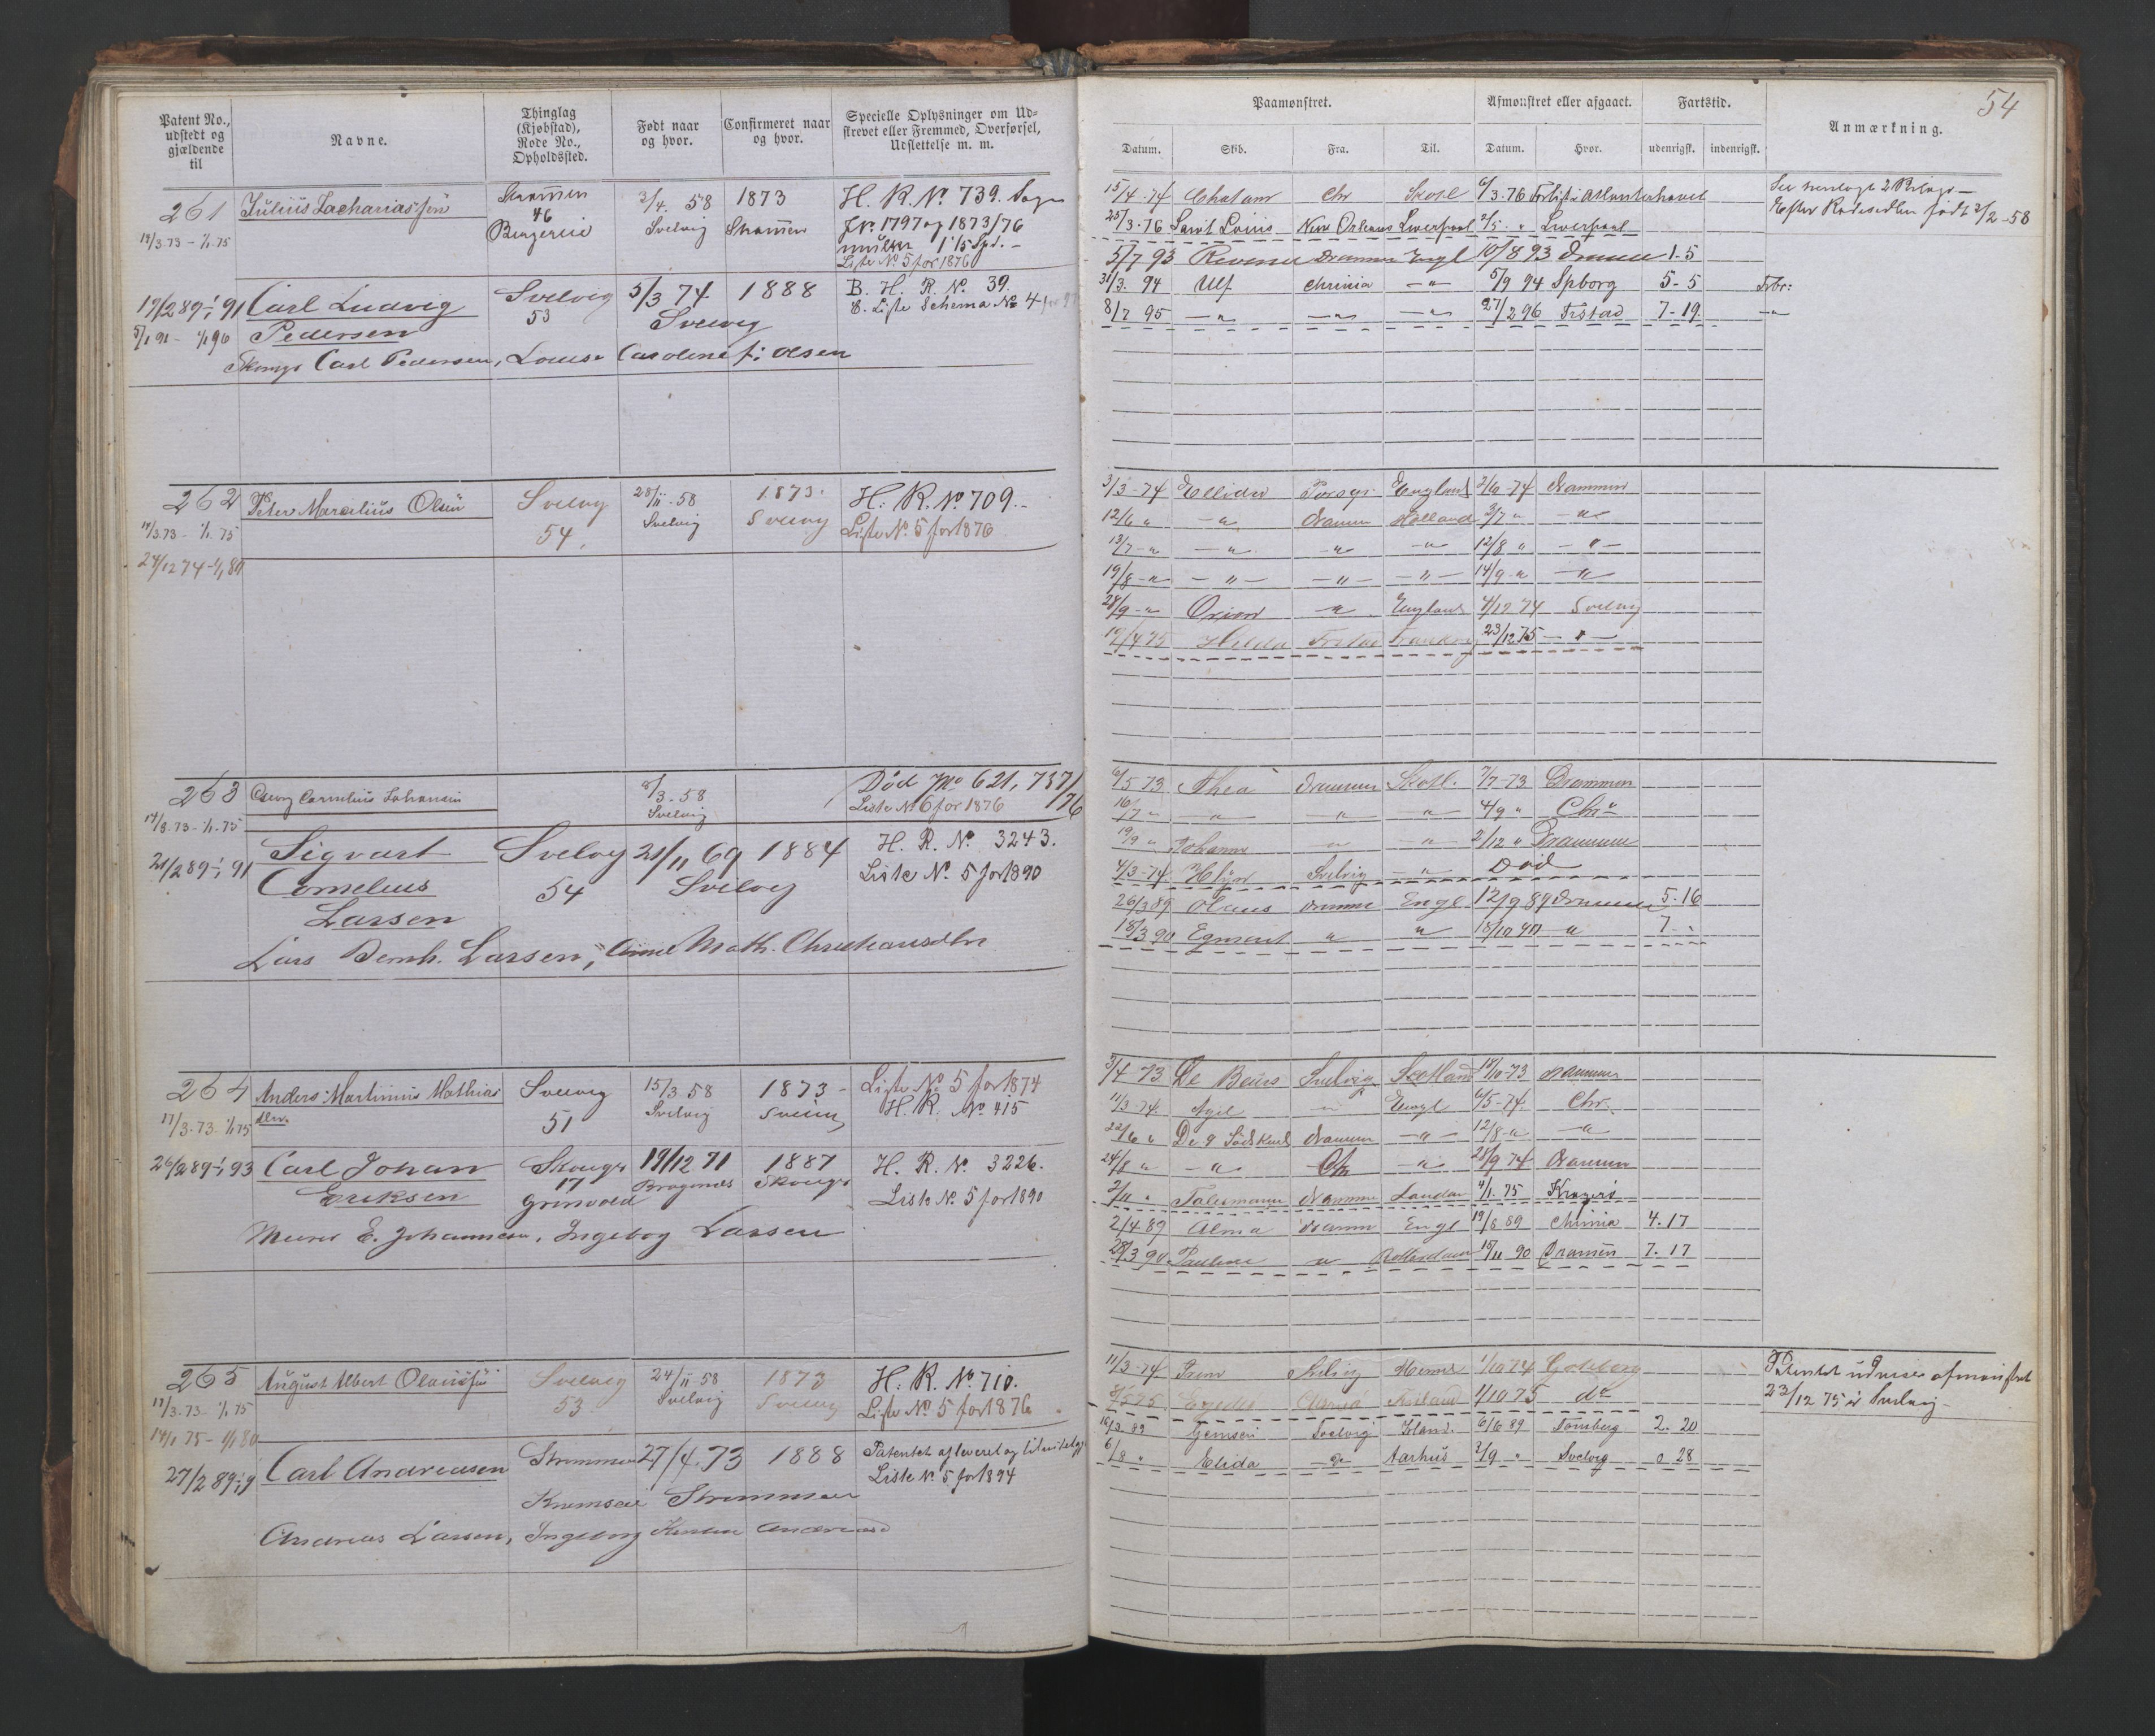 Patent No., udstedt og gjældende til
Navne.
Thinglag (Kjøbstad), Rode No., Opholdssted.
Født naar og hvor.
Confirmeret naar og hvor.
Specielle Oplysninger om Udskrevet eller Fremmed, Overførsel, Udslettelse m. m.
261 Julius Zachariassen 46 3/4 58 1873 H. R. No 739.
14/3.73 - 1/1.75 Svelvig
Jr. 1797 og 1873/76
Liste No 5 for 1876
19/2 89-1/1 91 Carl Ludvig Svelvig 5/3 74 1888 B. H. R. No. 39.
Pedersen 53 Svelvig E. Liste Schema No 4
Carl Pedersen, Louise Caroline f: Olsen
262 Peter Marcelius Olsen Svelvig 28/11-58 1873. H. R. No 709.
14/3.73 - 1/1.75 54. Svelvig Svelvig Liste No. 5 for 1876
24/12 74-1/1 80
263 Georg Cornelius Johansen 8/3-58 Død 621, 737/76
14/3.73-1/1.75 Svelvig Liste No 6 for 1876
21/2 89-1/1 91 Sigvart Svelvig 21/11 69 1884 H. R. No 3243.
Cornelius 54 Svelvig Liste No. 5 for 1890
Larsen
Lars Bernh. Larsen, Math. Christiansdtr
264 Anders Martinius Mathias Svelvig 15/3 58 1873 Liste No 5 for 1874
17/3-73-1/1 75 51 Svelvig Svelvig H. R. No 415
26/2 89-1/1 93 Carl Johan Skouger 19/12 71 1887 H. R. No. 3226.
Eriksen 17 Bragernes Skouger Liste No 5 for 1890
Murer E. Johannesen, Ingeborg Larsen
265 August Albert Olaussen Svelvig 24/11 58 1873 H. R. No. 710.
17/3-73-1/1 75 53 Svelvig Svelvig Liste No 5 for 1876
14/1 75-1/1 80
27/2 89 Carl Andreasen Strømmen 27/4.73 1888 Patentet afleveret og
Liste No 5 for 1894
Strømmen
Andreas Larsen, Ingeborg
54
Paamønstret.
Afmønstret eller afgaaet.
Fartstid.
Anmærkning.
Datum. Skib. Fra. Til. Datum. Hvor. udenrigsk. indenrigsk.
15/4-74 Chatam Chr Skotl 6/3.76 Atlanterhavet
25/3-76 Saint Louis New Orleans Liverpool 2/5 " Liverpool
5/7 93 Revenue Drammen Engl 10/8 93 Drammen 1-5
31/3. 94 Ulf Chrinia -"- 5/9 94 Spborg 5-5
8/7 95 -"- -"- -"- 27/2 96 Frstad 7-19 -"-
Efter Rodesedlen født 3/2-58
3/3-74 Ellida England 2/6-74 Drammen
12/6 " -"- Drammen Holland 3/7 " -"-
13/7-" -"- -"- -"- 12/8 " -"-
19/8-" -"- -"- -"- 14/9-" -"-
28/9-" Orion -"- England 4/12 74 Svelvig
19/4 75 Hilda Frstad 23/12 75 -"-
6/5 73 Thea Drammen Skotl. 7/7-73 Drammen
16/7 " " " " 4/9 " Chra
19/9 " Johanne " " 2/12 " Drammen
4/3-74 Svelvig -"- Død
26/3 89 Olaus Dramme Engl 12/9 89 Drammen 5.16
18/3 90 Egmont " " 18/10 90 " 7 -
3/4-73 De Svelvig Scotland 18/10-73 Drammen
11/3-74 Engl 6/5-74 Chr.
22/6 " De 9 Drammen -"- 12/8-" -"-
24/8 " -"- Chr -"- 28/9 74 Drammen
2/11 " Drammen London 4/1.75 Kragerø
2/4 89 Alma Dramm Engl 19/8 89 Chrinia 4.17
28/3 90 Pauline " Rotterdam 18/11 90 Drammen 7.17
11/3-74 Svelvig 1/10 74 Gøteborg
8/5 75 1/10 75 do
16/3 89 Svelvig 6/6 89 Tønsberg 2. 20
6/8 " Elida -"- Aarhus 2/9 " Svelvig 0 28
Patentet udviser afmønstret
23/12 75 i Svelvig